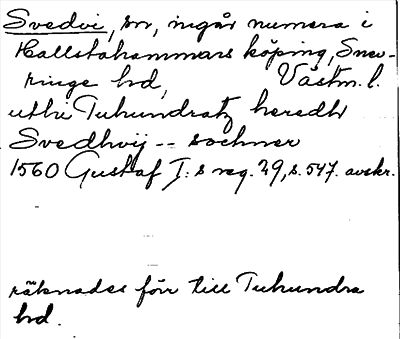 Svedvi, sn, ingår numera i
Hallstahammars köping, Snev-
ringe hd, Västm. l.
uthi Tuhundratz heredh
Svedhvij -- sochner
1560 Gustaf I:s reg. 29, s. 547. avskr.
räknades förr till Tuhundra
hd.